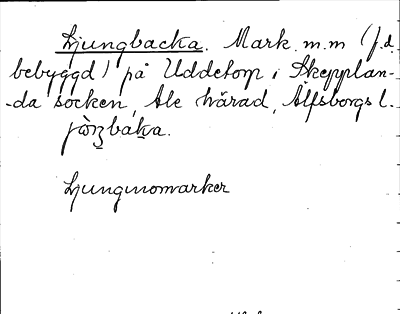 Ljungbacka. Mark m.m (f.d.
bebyggd) på Uddetorp i Skepplan-
-da socken, Ale härad, Älfsborgs l.
Ljungmomarker